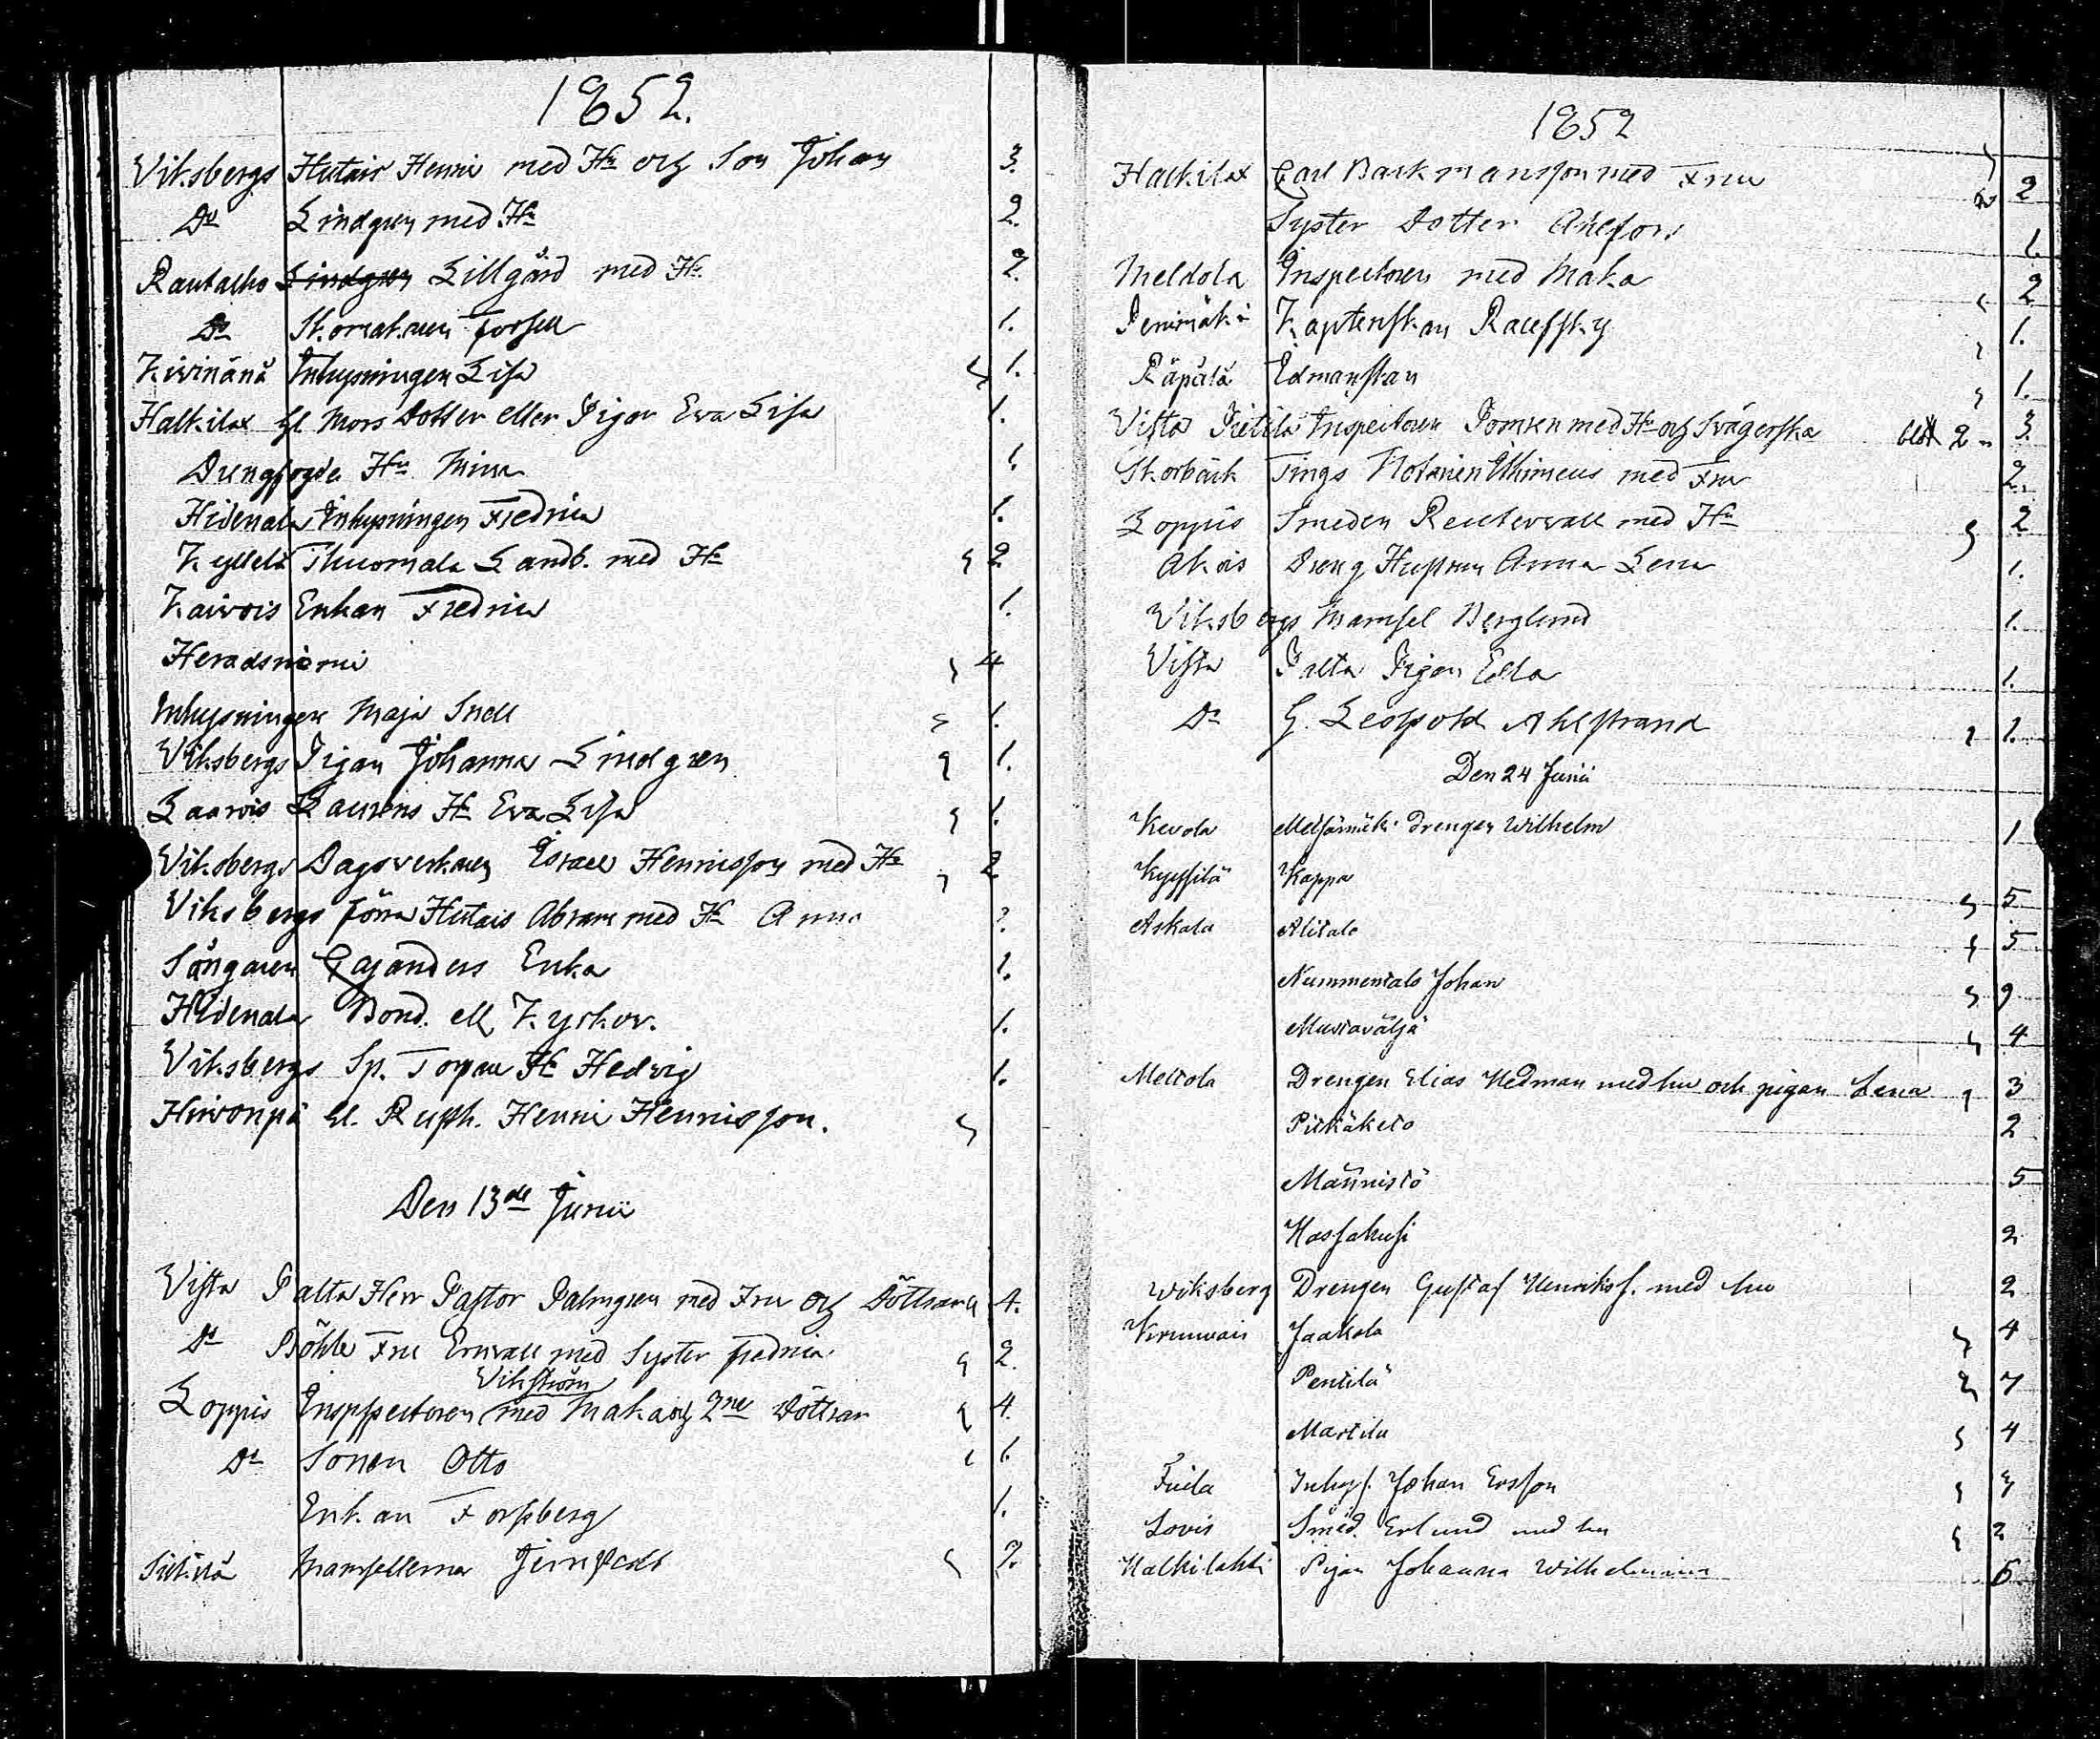 1852.
Viksbergs Hutais Henric med Hu och Son Johan 3.
Do Lindgren med Hu 2.
Rautalho Lindgren Lillgård med Hu 2.
Do Skomakaren Forsell 1.
Kivinänä Inhysningen Lisa 1.
Halkilax gl Mors Dotter eller Pigan Eva Lisa 1.
Hu Mina 1.
Hidenala Inhysningen Fredrica 1.
Thuomala Landb. med Hu 2
Kaivois Enkan Fredrica 1.
Heradsniemi 4
Inhysningen Maja Snell 1.
Viksbergs Pigan Johanna Lindgren 1.
Laurens Hu Eva Lisa 1.
Viksbergs Dagsverkaren Israel Henricsson med Hu 2
Viksbergs förra Hutais Abram med Hu Anna 2.
Sångaren Cajanders Enka 1.
Hidenala Bond. ell Kyrkov. 1.
Viksbergs Sp. Torpare Hu Hedvig 1.
Hirvonpä gl. Rusth. Henric Henricsson.
Den 13de Junii
Vista Palta Herr Pastor Palmgren med Fru och Döttrar 4.
Do Böhle Fru Ervall med Syster Fredrica 2.
Vikström
Loppis Inspectoren med Maka och 2ne Döttrar 4.
Do Sonen Otto 1.
Enkan Forssberg 1.
Mamsellerna 2.
1852
Halkilax Carl Barkmansson med Fru 2
Syster Dotter Ahlfors 1.
Meldola Inspectoren med Maka 2
Penimäki Kaptenskan 1.
Räpälä Edmanskan 1.
Vista Pietilä Inspectoren Pomren med Hu och Svägerska 2 3.
Storbäck Tings Notarien med Fru 2.
Loppis Smeden Reuterwall med Hu 2
Akois Dreng Hustrun Anna Lena 1.
Viksbergs Mamsel Berglund 1.
Vista Palta Pigan Edla 1.
Do G. Leopold Ahlstrand 1.
Den 24 Junii
Kevola Metsämäki drengen Wilhelm 1
Kyyssilä Kappa 5
Askala Alitalo 5
Nummentalo Johan 9
Mustaväljä 4
Meltola Drengen Elias Hedman med hu och pigan Lena 3
Pitkäketo 2
Männistö 5
Hassakusi 2
Wiksberg Drengen Gustaf Henrikss. med hu 2
Jaakola 4
Pentilä 7
Martila 4
Inhys. Johan Ersson
Lovis Smed. Erlund med hu 2
Halkilahti Pigan Johanna Wilhelmina